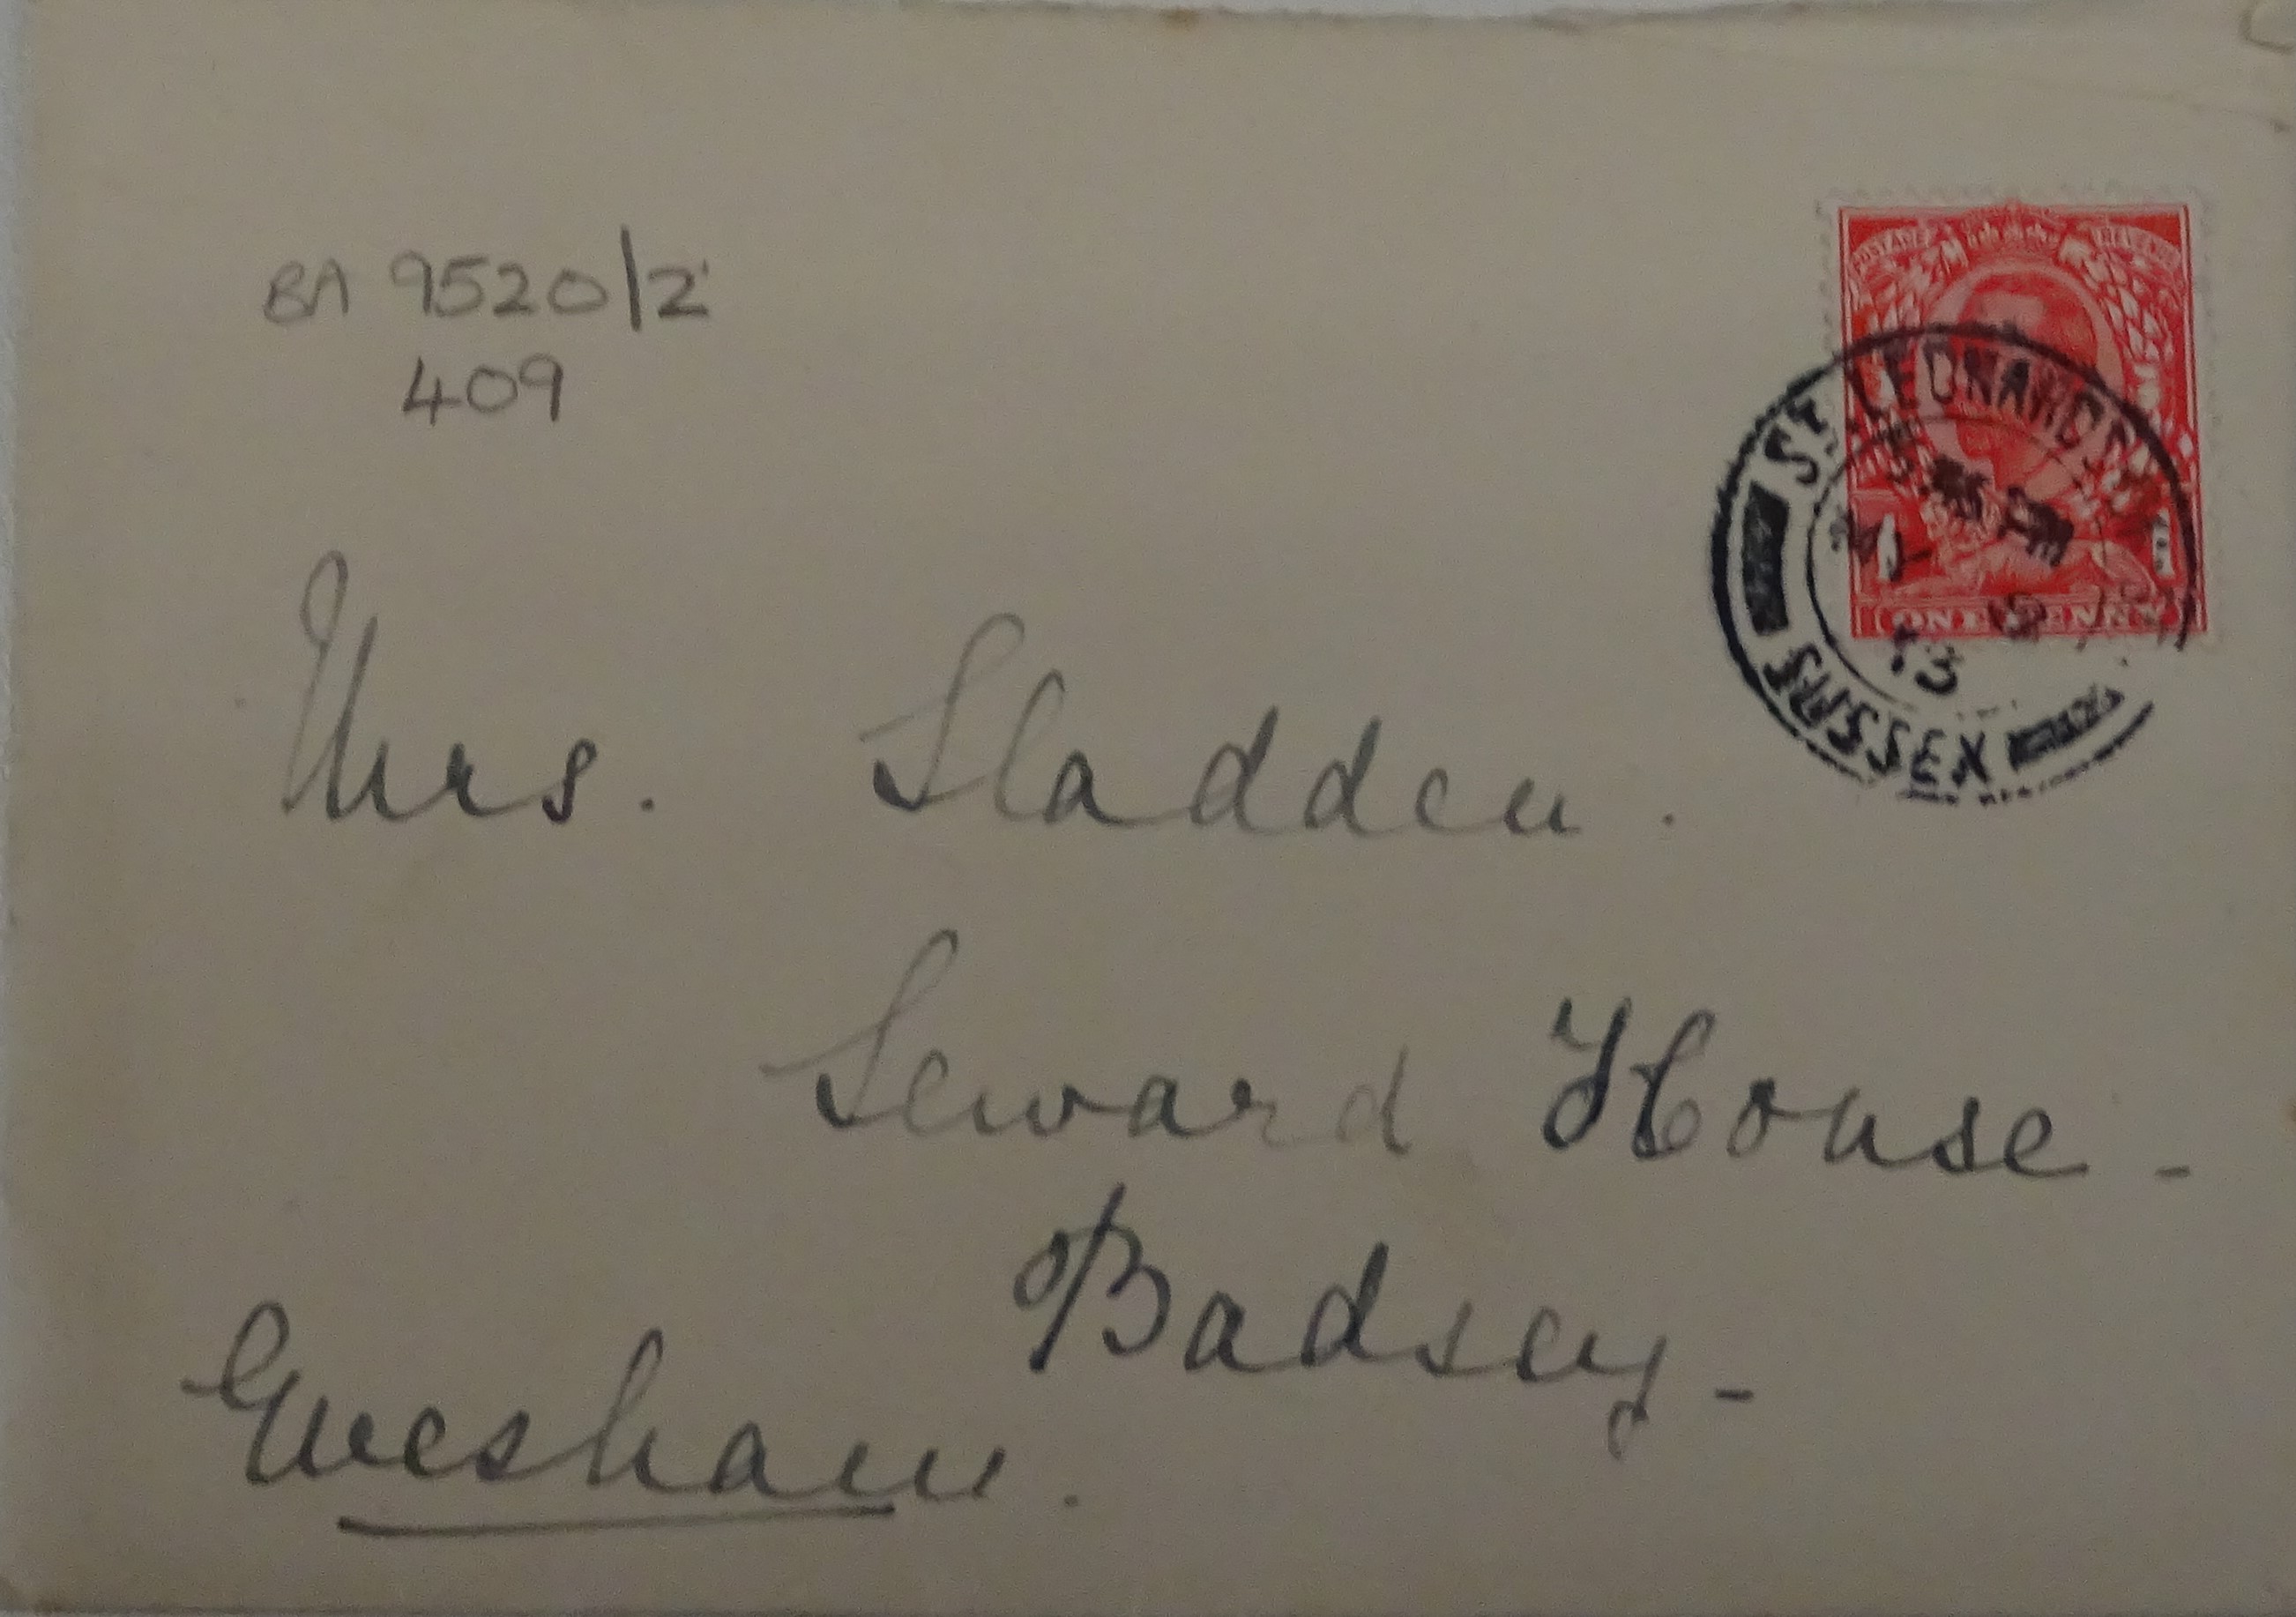 BA 9520/2
409
POSTAGE REVENUE
ONE PENNY
ST LEONARDS
PM
13
SUSSEX
Mrs. Sladden.
Seward House -
Badsey -
Evesham.